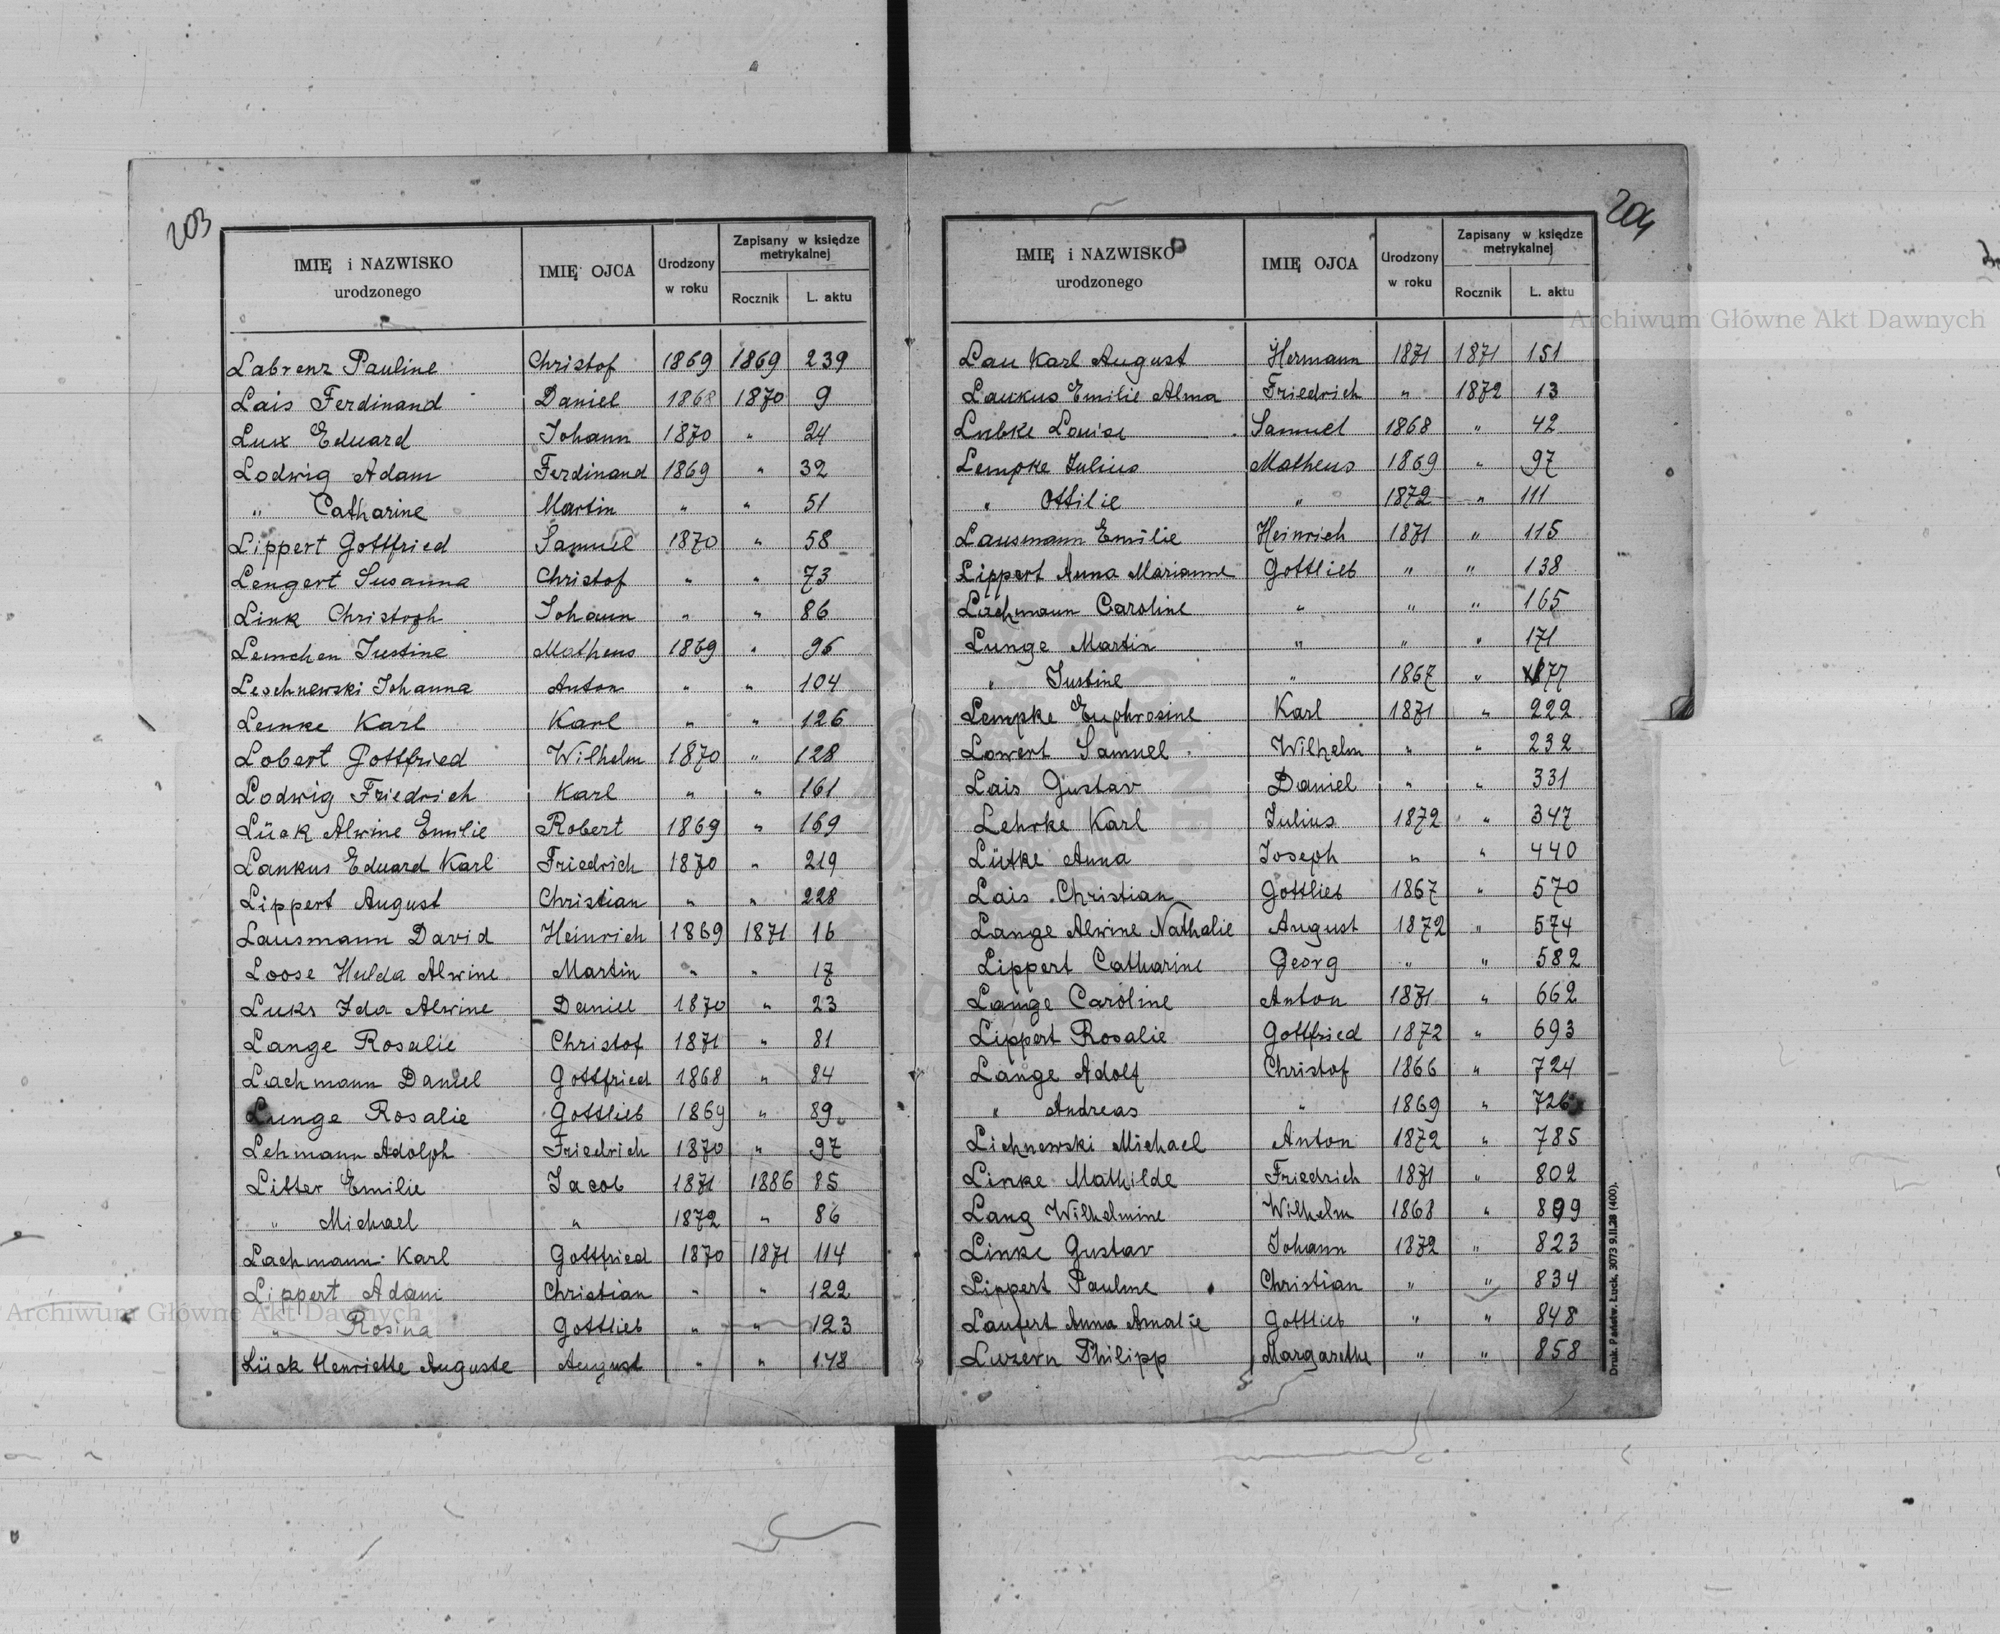 203
IMIĘ i NAZWISKO urodzonego | IMIĘ OJCA | Urodzony w roku | Zapisany w księdze metrykalnej
Rocznik | L. aktu
Labrenz Pauline | Christof | 1869 | 1869 | 239
Lais Ferdinand | Daniel | 1868 | 1870 | 9
Lux Eduard | Johann | 1870 | " | 24
Lodwig Adam | Ferdinand | 1869 | " | 32
" Catharine | Martin | " | " | 51
Lippert Gottfried | Samuel | 1870 | " | 58
Lengert Susanna | Christof | " | " | 73
Link Christoph | Johann | " | " | 86
Lemchen Justine | Matheus | 1869 | " | 96
Leschnewski Johanna | Anton | " | " | 104
Lemke Karl | Karl | " | " | 126
Lobert Gottfried | Wilhelm | 1870 | " | 128
Lodwig Friedrich | Karl | " | " | 161
Lück Alwine Emilie | Robert | 1869 | " | 169
Lankus Eduard Karl | Friedrich | 1870 | " | 219
Lippert August | Christian | " | " | 228
Lausmann David | Heinrich | 1869 | 1871 | 16
Loose Hulda Alwine | Martin | " | " | 17
Luks Ida Alwine | Daniel | 1870 | " | 23
Lange Rosalie | Christof | 1871 | " | 81
Lachmann Daniel | Gottfried | 1868 | " | 84
Lunge Rosalie | Gottlieb | 1869 | " | 89
Lehmann Adolph | Friedrich | 1870 | " | 97
Litter Emilie | Jacob | 1871 | 1886 | 85
" Michael | " | 1872 | " | 86
Lachmann Karl | Gottfried | 1870 | 1871 | 114
Lippert Adam | Christian | " | " | 122
" Rosina | Gottlieb | " | " | 123
Lück Henriette Auguste | August | " | " | 148
204
IMIĘ i NAZWISKO urodzonego | IMIĘ OJCA | Urodzony w roku | Zapisany w księdze metrykalnej
Rocznik | L. aktu
Lau Karl August | Hermann | 1871 | 1871 | 151
Laukus Emilie Alma | Friedrich | " | 1872 | 13
Lubke Louise | Samuel | 1868 | " | 42
Lempke Julius | Matheus | 1869 | " | 97
" Ottilie | " | 1872 | " | 111
Lausmann Emilie | Heinrich | 1871 | " | 115
Lippert Anna Marianne | Gottlieb | " | " | 138
Lachmann Caroline | " | " | " | 165
Lunge Martin | " | " | " | 171
" Justine | " | 1867 | " | 177
Lempke Euphrosine | Karl | 1871 | " | 222
Lowert Samuel | Wilhelm | " | " | 232
Lais Gustav | Daniel | " | " | 331
Lehrke Karl | Julius | 1872 | " | 347
Lütke Anna | Joseph | " | " | 440
Lais Christian | Gottlieb | 1867 | " | 570
Lange Alwine Nathalie | August | 1872 | " | 574
Lippert Catharine | Georg | " | " | 582
Lange Caroline | Anton | 1871 | " | 662
Lippert Rosalie | Gottfried | 1872 | " | 693
Lange Adolf | Christof | 1866 | " | 724
" Andreas | " | 1869 | " | 726
Lichnewski Michael | Anton | 1872 | " | 785
Linke Mathilde | Friedrich | 1871 | " | 802
Lang Wilhelmine | Wilhelm | 1868 | " | 809
Linke Gustav | Johann | 1872 | " | 823
Lippert Pauline | Christian | " | " | 834
Laufert Anna Amalie | Gottlieb | " | " | 848
Luzern Philipp | Margarethe | " | " | 858
Druk. Państw. Łuck. 3073 9.II.28 (400).
Archiwum Główne Akt Dawnych
Archiwum Główne Akt Dawnych